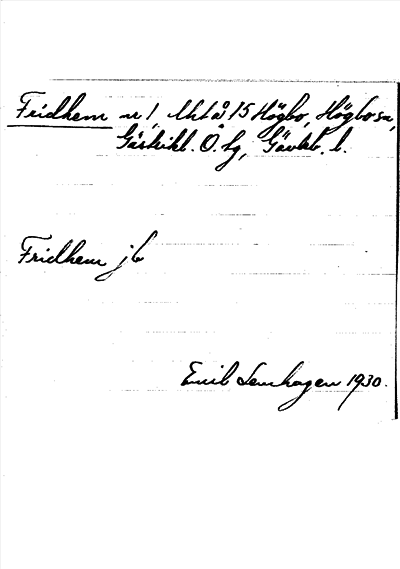 Fridhem nr 1, Utså 15 Högbo, Högbo sn,
Gästrikl. Ö. hg, Gävleb. l.
Fridhem jb
Emil Lenhagen 1930.